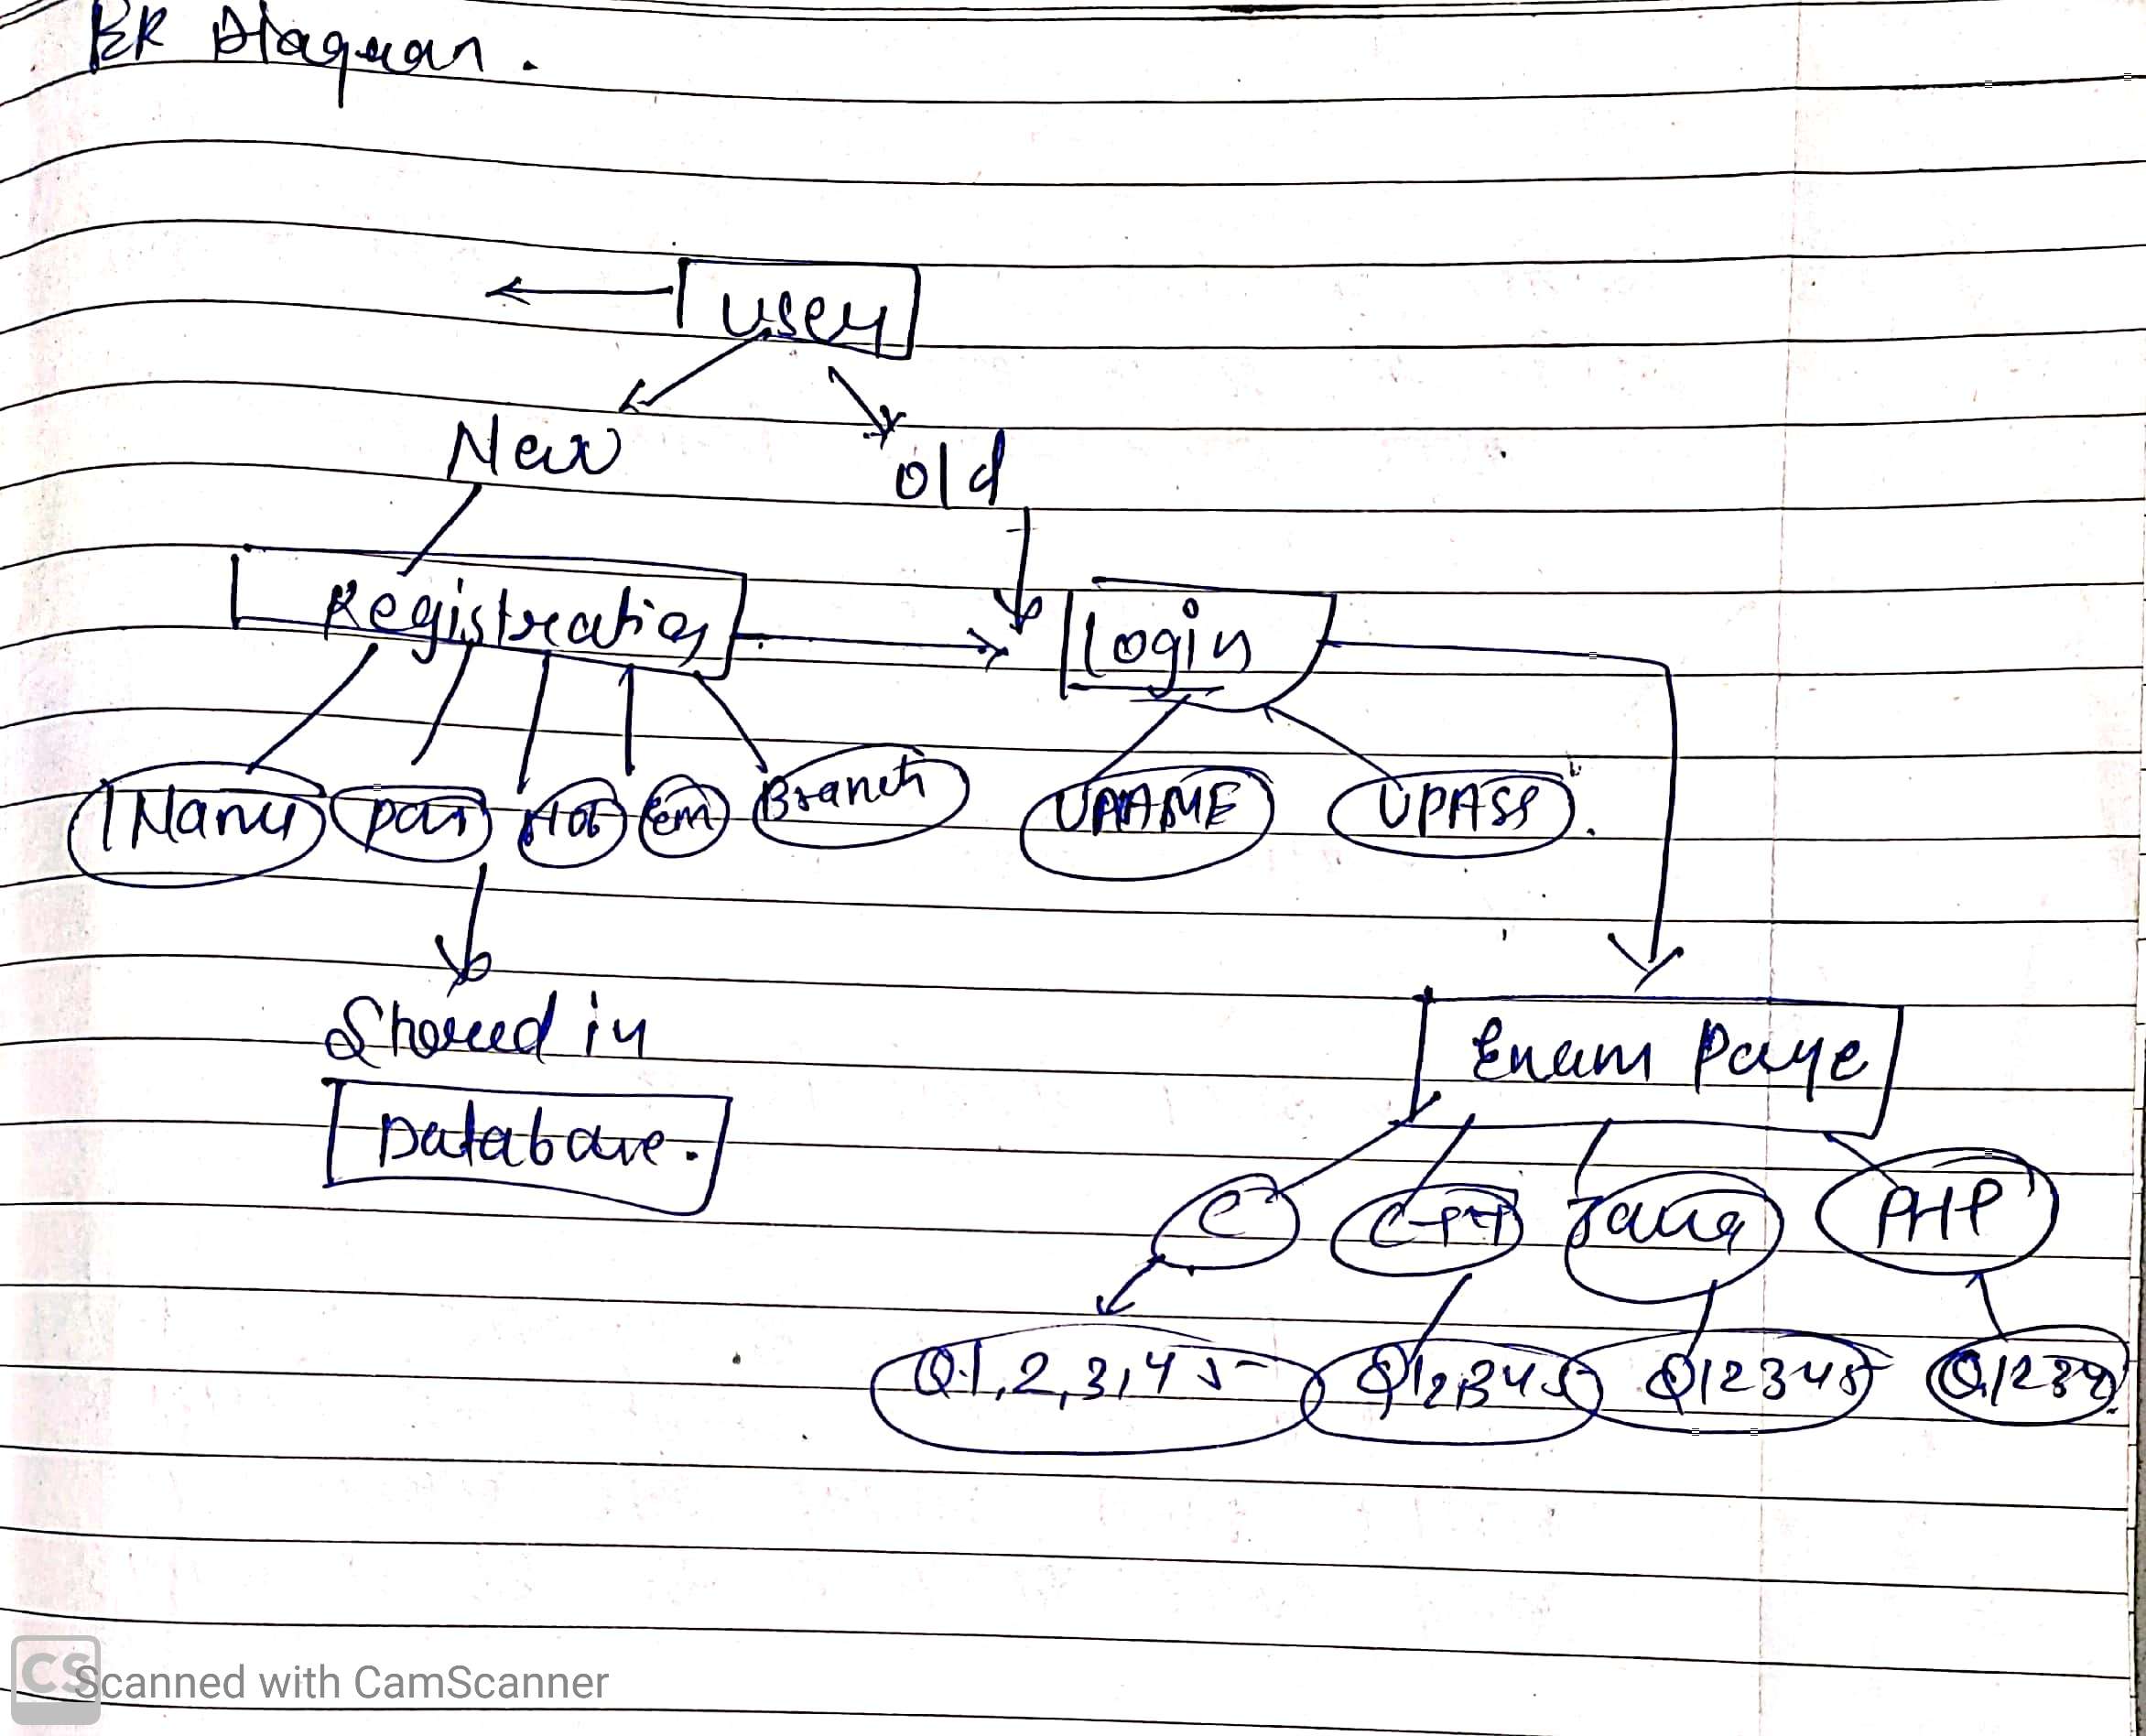 ER Diagram.
User
New
old
Registration
Login
Name pas Mob em Branch UNAME UPASS.
Stored in
Exam Page
Database.
C C++ Java PHP
Q.1,2,3,4 5 Q12345 Q12345 Q.1234
CS Scanned with CamScanner